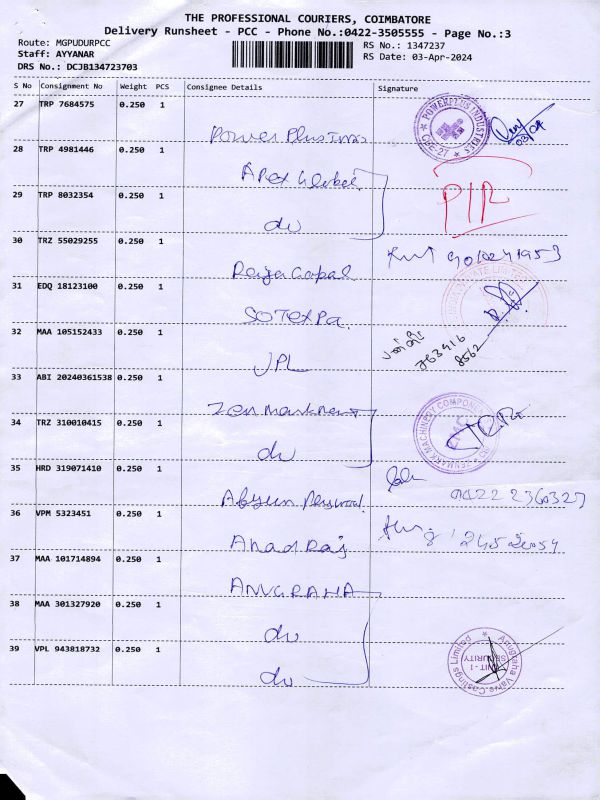 THE PROFESSIONAL COURIERS, COIMBATORE
Delivery Runsheet - PCC - Phone No.:0422-3505555 - Page No.:3
Route: MGPUDURPCC
Staff: AYYANAR
DRS No.: DCJB134723703
RS No.: 1347237
RS Date: 03-Apr-2024
S No Consignment No Weight PCS Consignee Details Signature
27 TRP 7684575 0.250 1
POWERPLUS INDUSTRIES
CBE-27
Power Plus Inds
28 TRP 4981446 0.250 1
Apex Global
29 TRP 8032354 0.250 1
do
30 TRZ 55029255 0.250 1
Raja Gopal
31 EDQ 18123100 0.250 1
SOTEXPA
32 MAA 105152433 0.250 1
763416
8562
UPL
33 ABI 20240361538 0.250 1
34 TRZ 310010415 0.250 1
do
35 HRD 319071410 0.250 1
0422 2360327
36 VPM 5323451 0.250 1
Anad Raj
37 MAA 101714894 0.250 1
ANUGRAHA
38 MAA 301327920 0.250 1
do
39 VPL 943818732 0.250 1
do
Anugraha Valve Castings Limited
UNIT - I
SECURITY